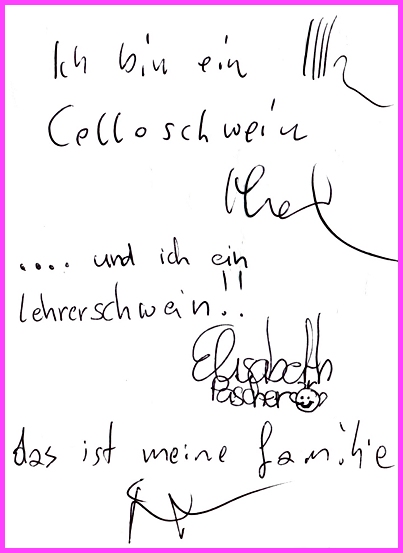 Ich bin ein
Celloschwein
.... und ich ein
Lehrerschwein!!
Elisabeth
Pascher
das ist meine familie